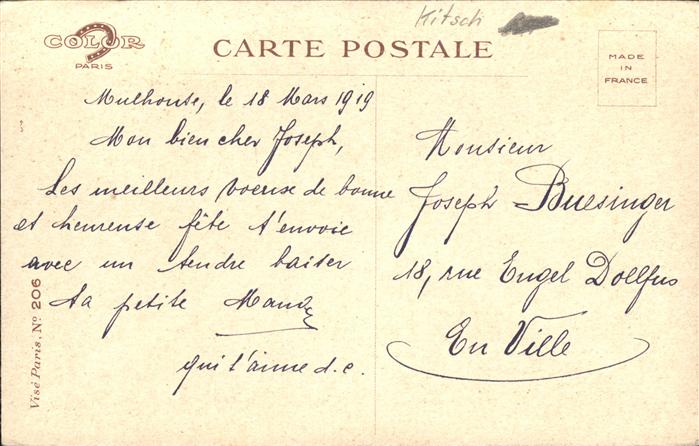 Kitsch
COLOR
PARIS
CARTE POSTALE
MADE
IN
FRANCE
Mulhouse, le 18 Mars 1919
Mon bien cher Joseph,
Les meilleurs voeux de bonne
et heureuse fête t'envoie
avec un tendre baiser
ta petite
qui t'aime d. c.
Visé Paris, No 206
Monsieur
Joseph Buesinger
18, rue Engel Dollfus
En Ville